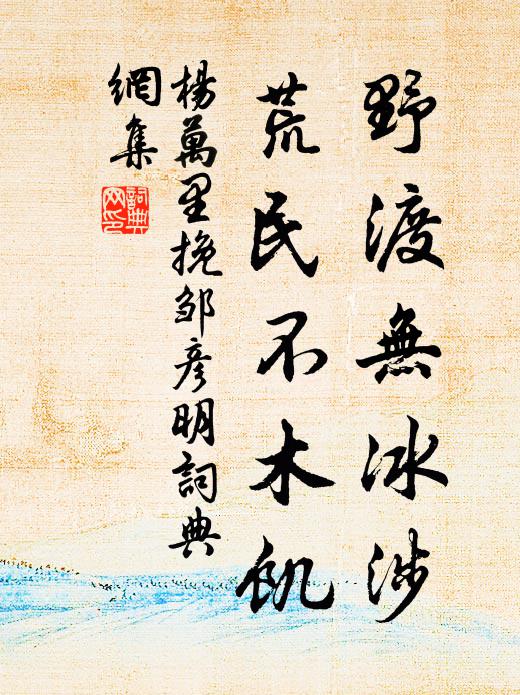 野渡無冰涉
荒民不木飢
楊萬里挽邹彦明詞典
網集
詞典網印